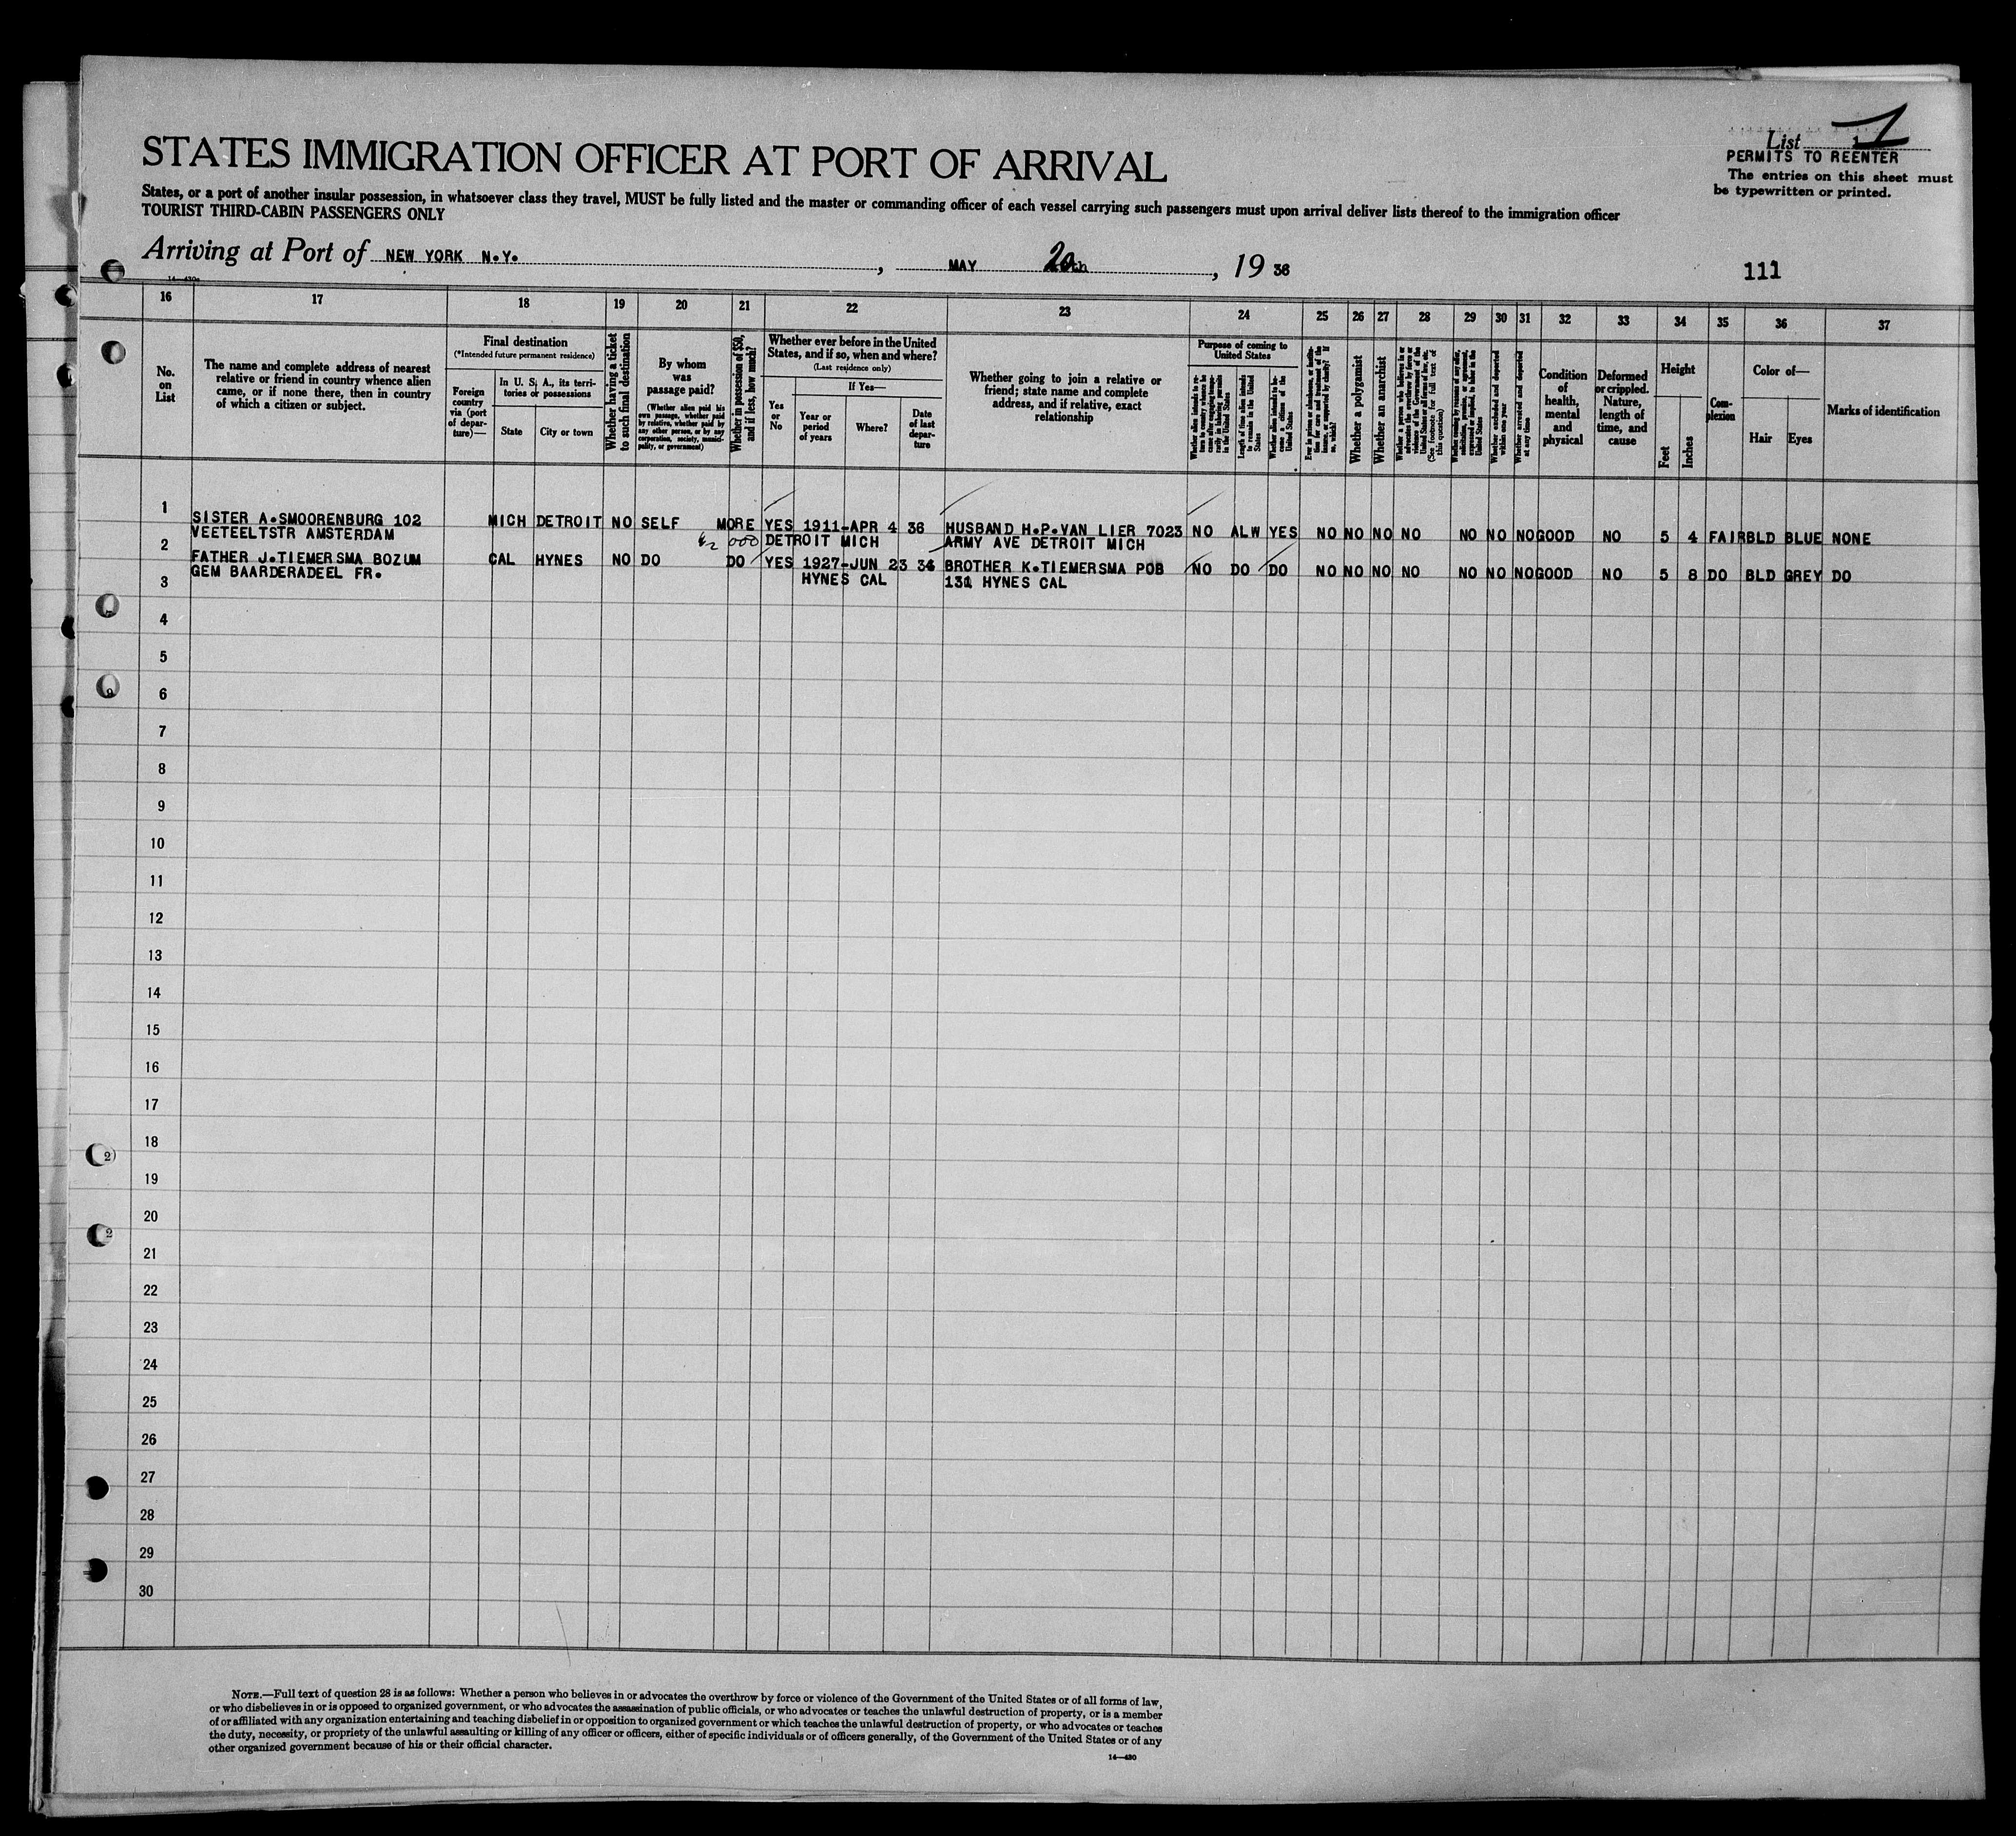 List 1
PERMITS TO REENTER
The entries on this sheet must
be typewritten or printed.
STATES IMMIGRATION OFFICER AT PORT OF ARRIVAL
States, or a port of another insular possession, in whatsoever class they travel, MUST be fully listed and the master or commanding officer of each vessel carrying such passengers must upon arrival deliver lists thereof to the immigration officer
TOURIST THIRD-CABIN PASSENGERS ONLY
Arriving at Port of NEW YORK N.Y., MAY 20th, 1936
111
16 17 18 19 20 21 22 23 24 25 26 27 28 29 30 31 32 33 34 35 36 37
No.
on
List
The name and complete address of nearest
relative or friend in country whence alien
came, or if none there, then in country
of which a citizen or subject.
Final destination
(*Intended future permanent residence)
Foreign
country
via (port
of depar-
ture)—
In U. S. A., its terri-
tories or possessions
State
City or town
Whether having a ticket
to such final destination
By whom
was
passage paid?
(Whether alien paid his
own passage, whether paid
by relative, whether paid by
any other person, or by any
corporation, society, munici-
pality, or government)
Whether in possession of $50,
and if less, how much?
Whether ever before in the United
States, and if so, when and where?
(Last residence only)
Yes
or
No
If Yes—
Year or
period
of years
Where?
Date
of last
depar-
ture
Whether going to join a relative or
friend; state name and complete
address, and if relative, exact
relationship
Purpose of coming to
United States
Length of time alien intends
to remain in the United
States
Whether alien intends to be-
come a citizen of the
United States
Whether a polygamist
Whether an anarchist
(See footnote for full text of
this question)
Whether arrested and deported
at any time
Condition
of
health,
mental
and
physical
Deformed
or crippled.
Nature,
length of
time, and
cause
Height
Feet
Inches
Com-
plexion
Color of—
Hair
Eyes
Marks of identification
1 SISTER A.SMOORENBURG 102 MICH DETROIT NO SELF MORE YES 1911-APR 4 36 HUSBAND H.P.VAN LIER 7023 NO ALW YES NO NO NO NO NO NO NO GOOD NO 5 4 FAIR BLD BLUE NONE
VEETEELTSTR AMSTERDAM DETROIT MICH ARMY AVE DETROIT MICH
2 FATHER J.TIEMERSMA BOZUM CAL HYNES NO DO DO YES 1927-JUN 23 34 BROTHER K.TIEMERSMA POB NO DO DO NO NO NO NO NO NO NO GOOD NO 5 8 DO BLD GREY DO
GEM BAARDERADEEL FR. HYNES CAL 131 HYNES CAL
3
4
5
6
7
8
9
10
11
12
13
14
15
16
17
18
19
20
21
22
23
24
25
26
27
28
29
30
NOTE.—Full text of question 28 is as follows: Whether a person who believes in or advocates the overthrow by force or violence of the Government of the United States or of all forms of law,
or who disbelieves in or is opposed to organized government, or who advocates the assassination of public officials, or who advocates or teaches the unlawful destruction of property, or is a member
of or affiliated with any organization entertaining and teaching disbelief in or opposition to organized government or which teaches the unlawful destruction of property, or who advocates or teaches
the duty, necessity, or propriety of the unlawful assaulting or killing of any officer or officers, either of specific individuals or of officers generally, of the Government of the United States or of any
other organized government because of his or their official character.
14—430